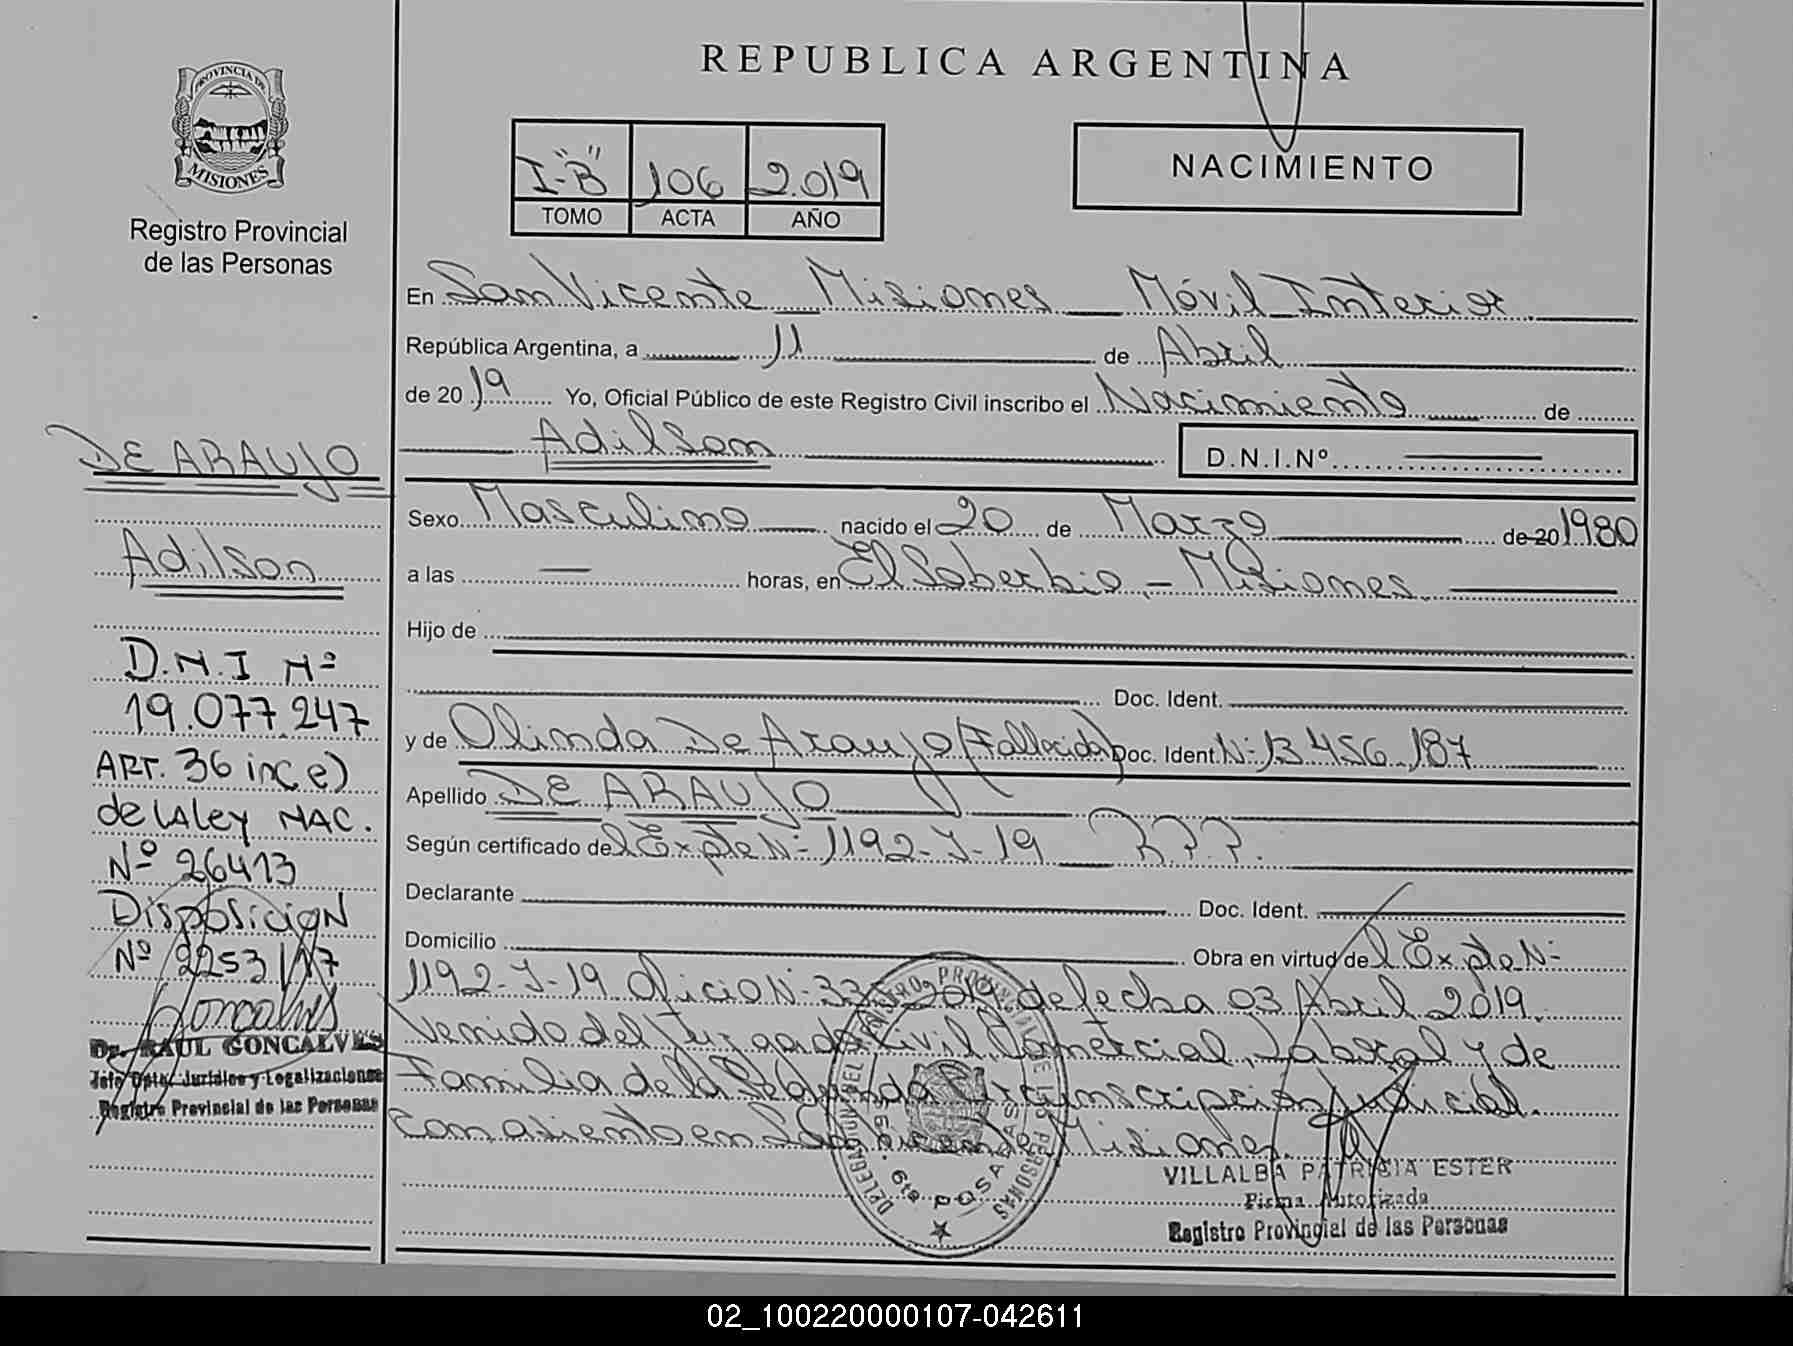 REPUBLICA ARGENTINA
PROVINCIA DE
MISIONES
Registro Provincial
de las Personas
I-"B" 106 2.019
TOMO ACTA AÑO
NACIMIENTO
En San Vicente Misiones Móvil Interior
República Argentina, a 11 de Abril
de 2019 Yo, Oficial Público de este Registro Civil inscribo el Nacimiento de
Adilson D.N.I.Nº
Sexo Masculino nacido el 20 de Marzo de 20 1980
a las — horas, en El Soberbio - Misiones
Hijo de
Doc. Ident.
y de Olinda De Araujo (Fallecida) Doc. Ident. Nº 13.456.187
Apellido DE ARAUJO
Según certificado del Expte Nº 1192-J-19 R.P.P.
Declarante Doc. Ident.
Domicilio Obra en virtud del Expte Nº
1192-J-19 Oficio Nº 2019 de fecha 03 Abril 2019.
Venido del Juzgado Civil, Comercial, Laboral y de
Familia de la Segunda Circunscripción Judicial.
con asiento en San Vicente Misiones.
VILLALBA PATRICIA ESTER
Firma Autorizada
Registro Provincial de las Personas
DE ARAUJO
Adilson
D.N.I Nº
19.077.247
ART. 36 inc e)
de LA Ley NAC.
Nº 26413
DisposicioN
Nº 2253/17
Goncalves
Dr. RAUL GONCALVES
Jefe Dpto. Jurídico y Legalizaciones
Registro Provincial de las Personas
POSADAS
02_100220000107-042611